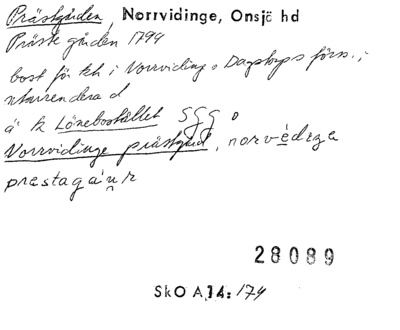 Prästgården, Norrvidinge, Onsjö hd
Präste gården 1794
bost för kh i Norrvidinge o Dagstorps förs.;
utarrendera d
ä k Lönebostället
Norrvidinge prästgård, norvédiga
præstagáur
28089
SkO A14: 174